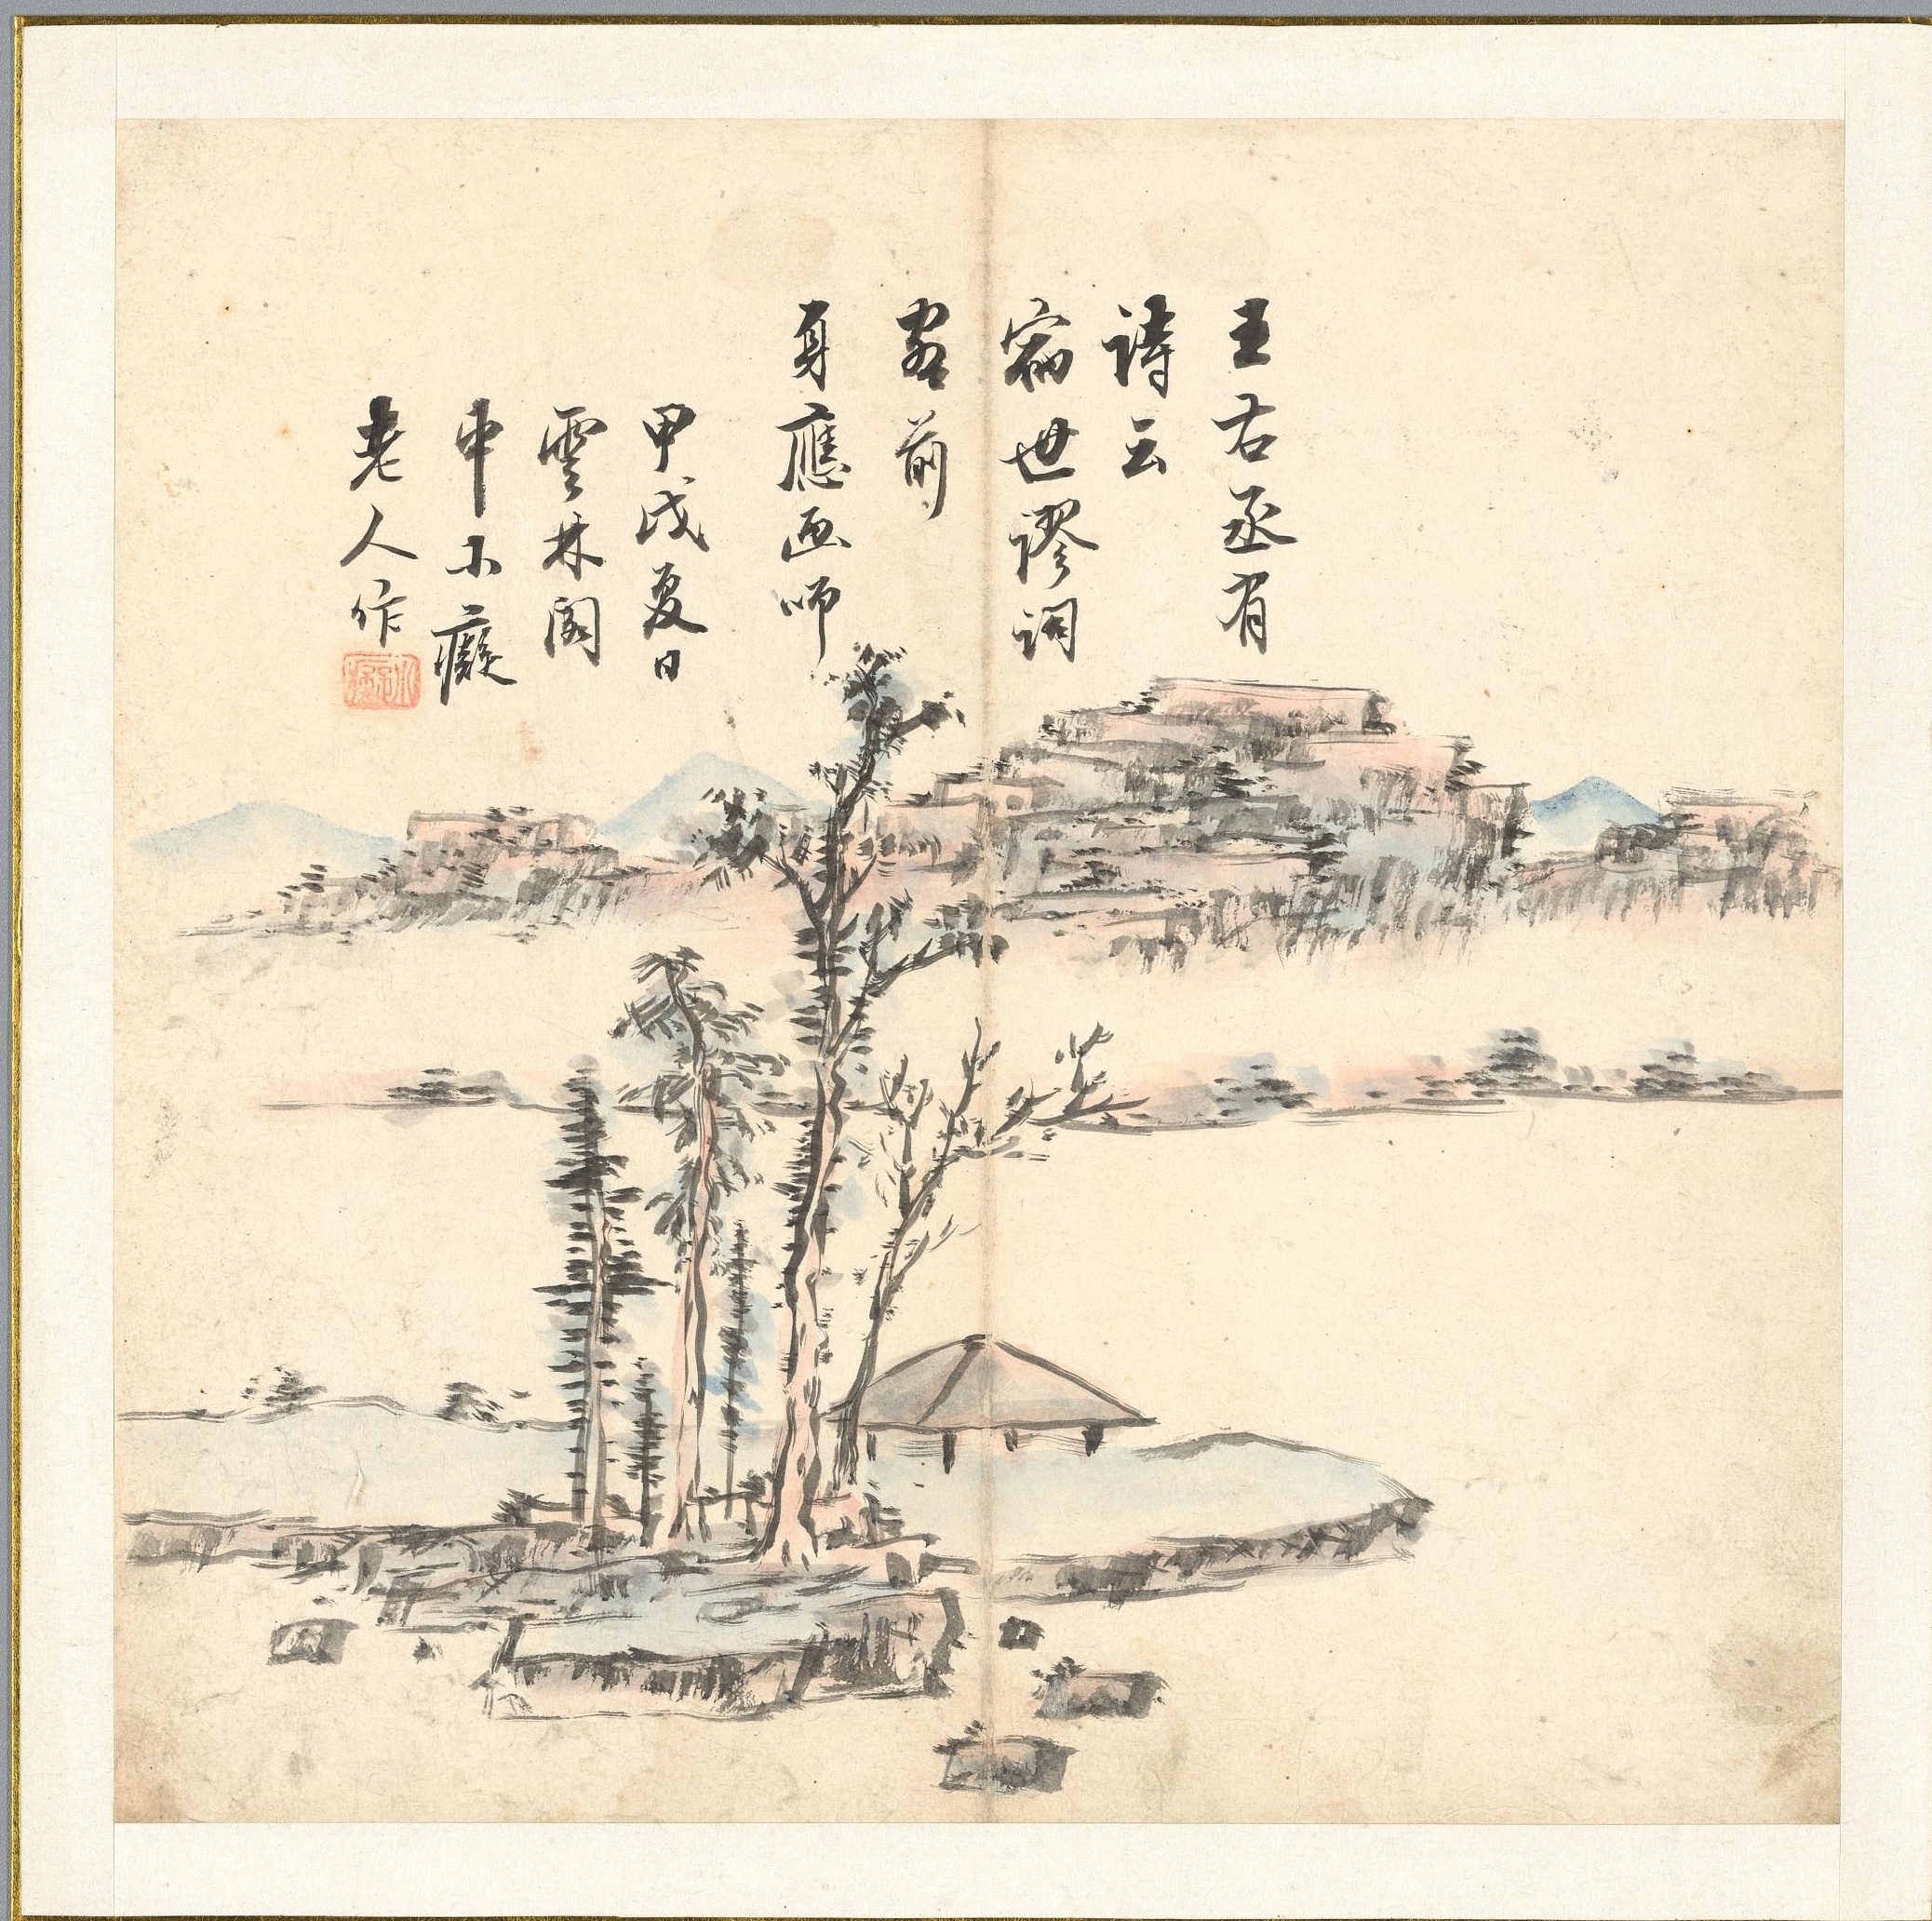 王右丞有
詩云
宿世謬詞
客前
身應画師
甲戌夏日
雲林閣
中小癡
老人作